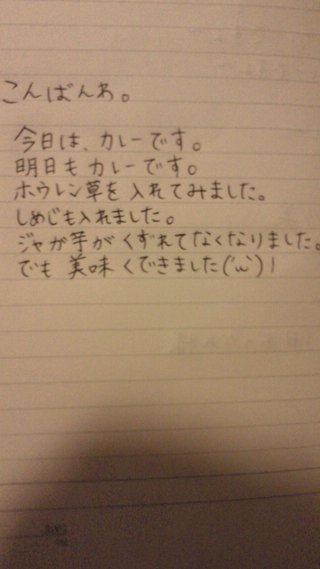 こんばんわ。
今日は、カレーです。
明日もカレーです。
ホウレン草を入れてみました。
しめじも入れました。
ジャが芋がくずれてなくなりました。
でも美味くできました(´ω`)!